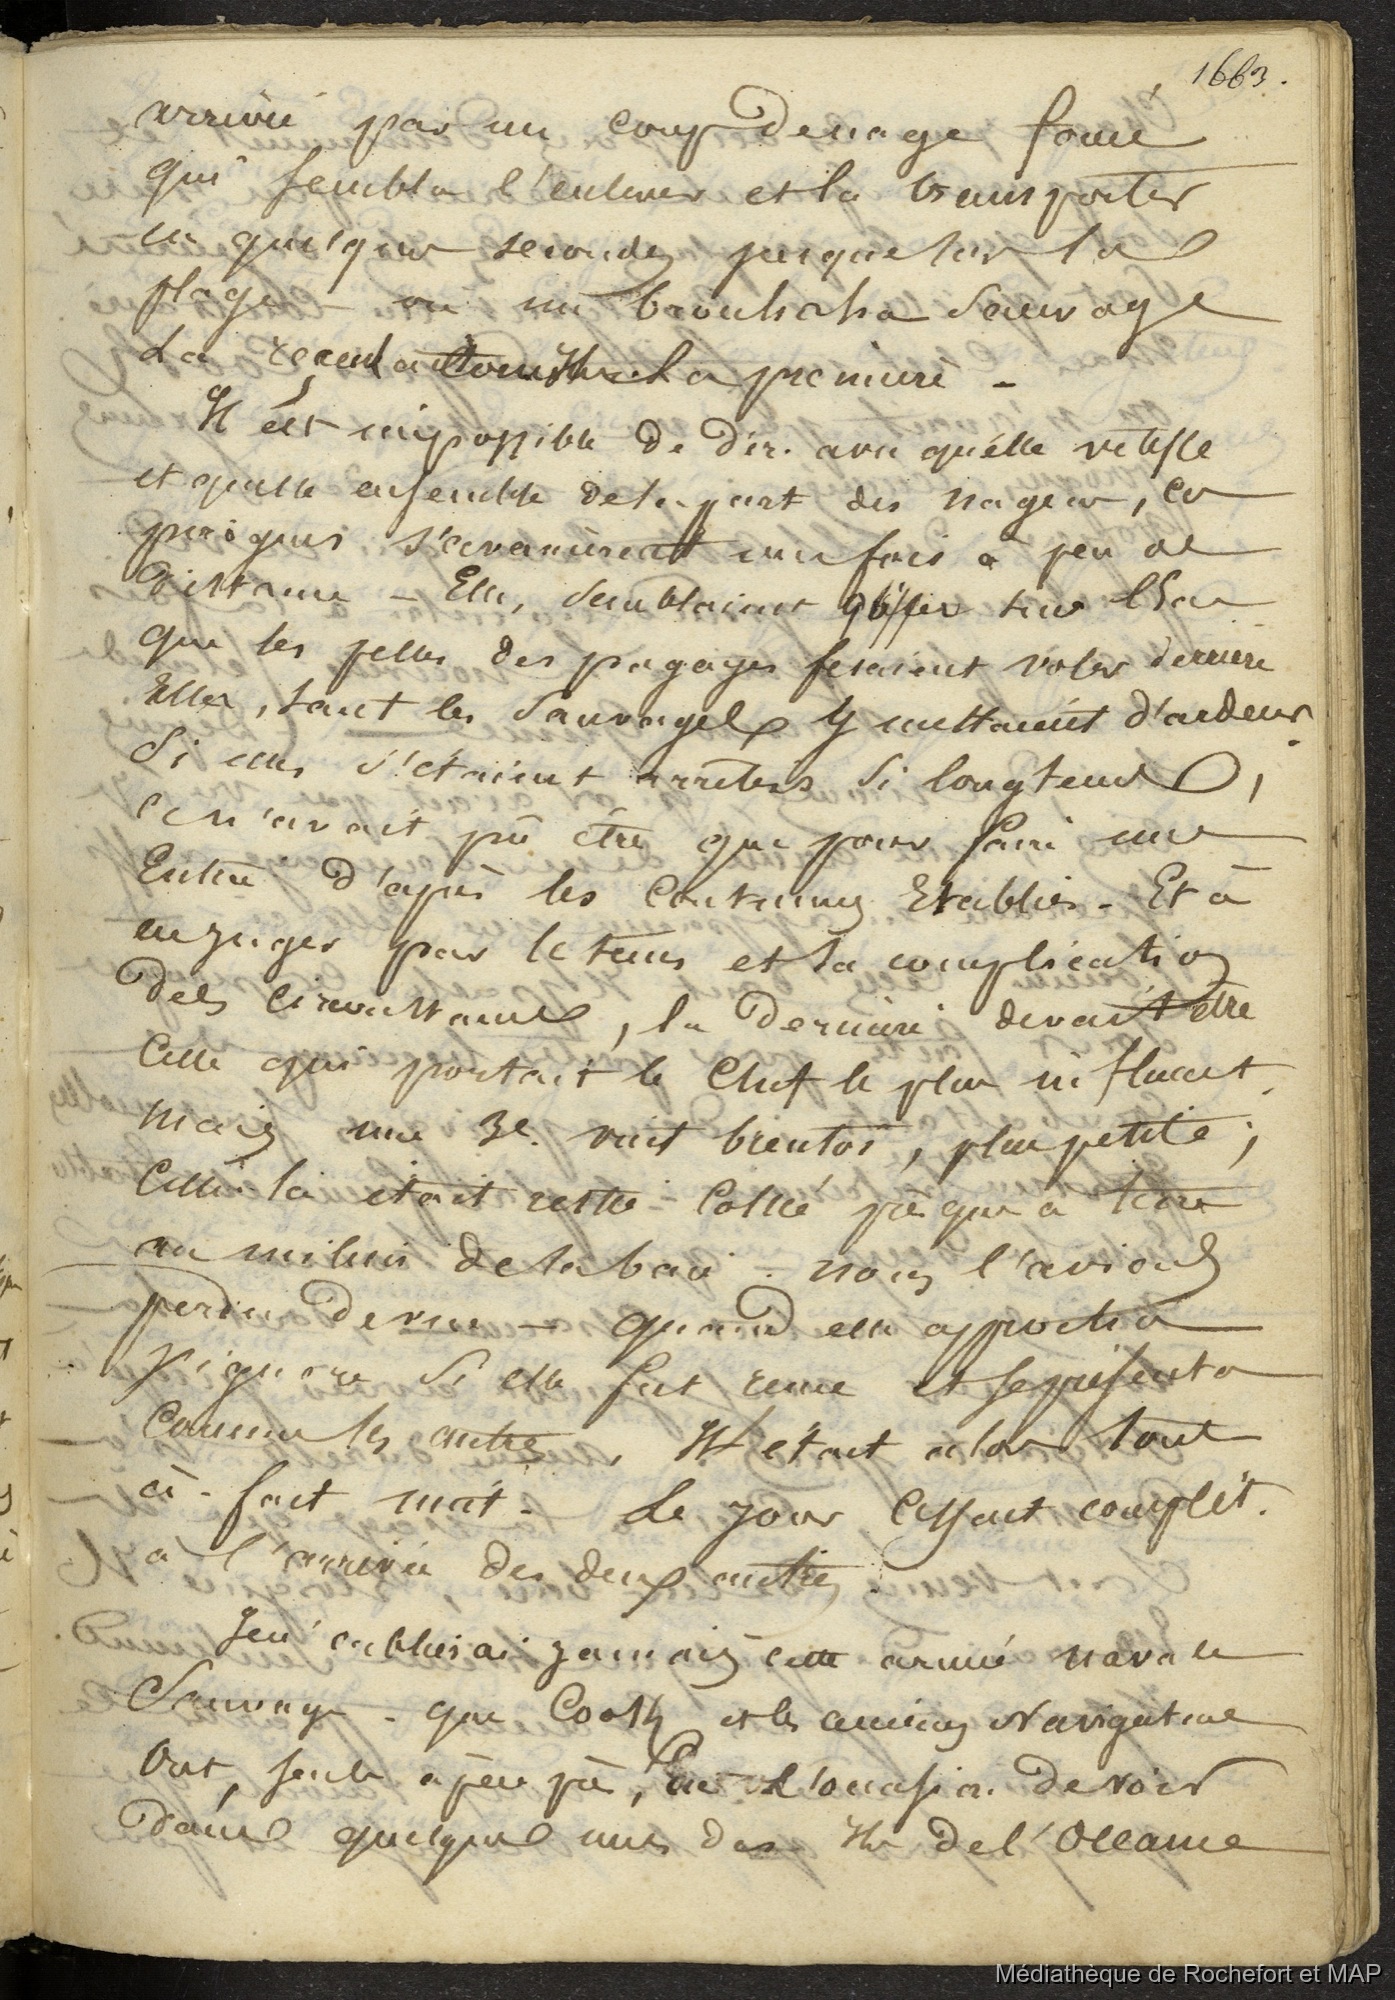 1663.
arrivée par un coup de nage forcé
qui sembla l'enlever et la transporter
en quelques secondes jusque sur la
plage – où un brouhaha sauvage
la reçut comme la première –
Il est impossible de dire avec qu'elle vitesse
et quelle ensemble de la part des nageurs, ces
pirogues s'avancèrent une fois à peu de
distance – Elles semblaient glisser sur l'Eau
que les pelles des pagayes fesaient voler derrière
Elles, tant les sauvages y mettaient d'ardeur.
Si elles s'étaient arrêtées si longtems,
ce n'avait pû être que pour faire une
Entrée d'après les Coutumes Etablies – Et à
en juger par le tems et la complication
des circonstances, la dernière devait être
Celle qui portait le Chef le plus influent.
Mais une 3e. vint bientôt, plus petite ;
Celle là était restée – Collée presque à terre
au milieu de la baie – nous l'avions
perdu de vue – quand elle approcha
J'ignore si elle fut reçue et se présenta
Comme les autres. Il était alors tout
à-fait nuit – Le jour cessant complèt.
à l'arrivée des deux autres.
Je n'oublierai jamais cette armée navale
Sauvage – que Cook et les anciens Navigateurs
Ont, seuls à peu près, Eu l'occasion de voir
Dans quelques unes des Iles de l'Océanie
Médiathèque de Rochefort et MAP